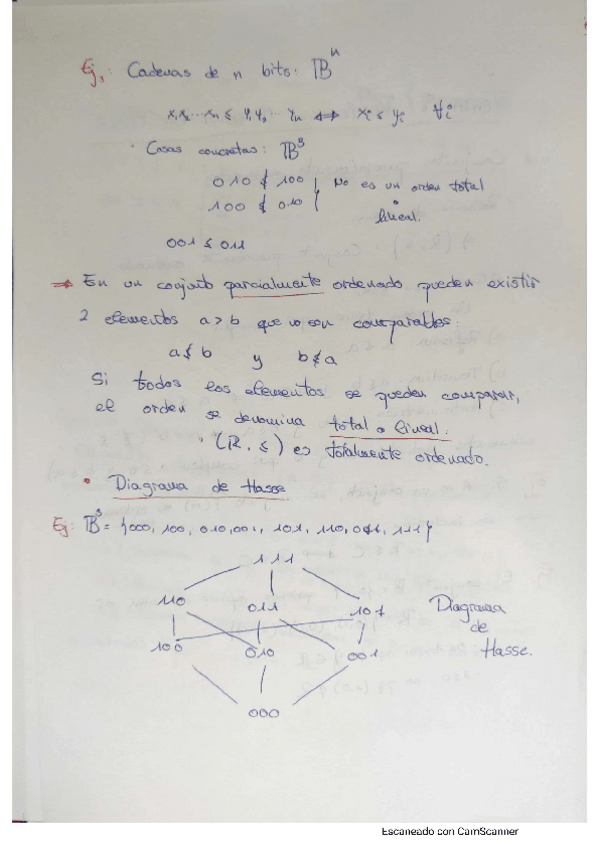 Ej₃: Cadenas de n bits: 𝔹ⁿ
x₁x₂...xₙ ≤ y₁y₂... yₙ ⟺ xᵢ ≤ yᵢ ∀i
· Casos concretos: 𝔹³
010 ≰ 100
100 ≰ 010 } No es un orden total o lineal.
001 ≤ 011
⇒ En un conjunto parcialmente ordenado pueden existir
2 elementos a > b que no son comparables:
a ≰ b y b ≰ a
Si todos los elementos se pueden comparar,
el orden se denomina total o lineal.
· (ℝ, ≤) es totalmente ordenado.
• Diagrama de Hasse
Ej: 𝔹³ = {000, 100, 010, 001, 101, 110, 011, 111}
111
110 011 101
100 010 001
000
Diagrama
de
Hasse.
Escaneado con CamScanner